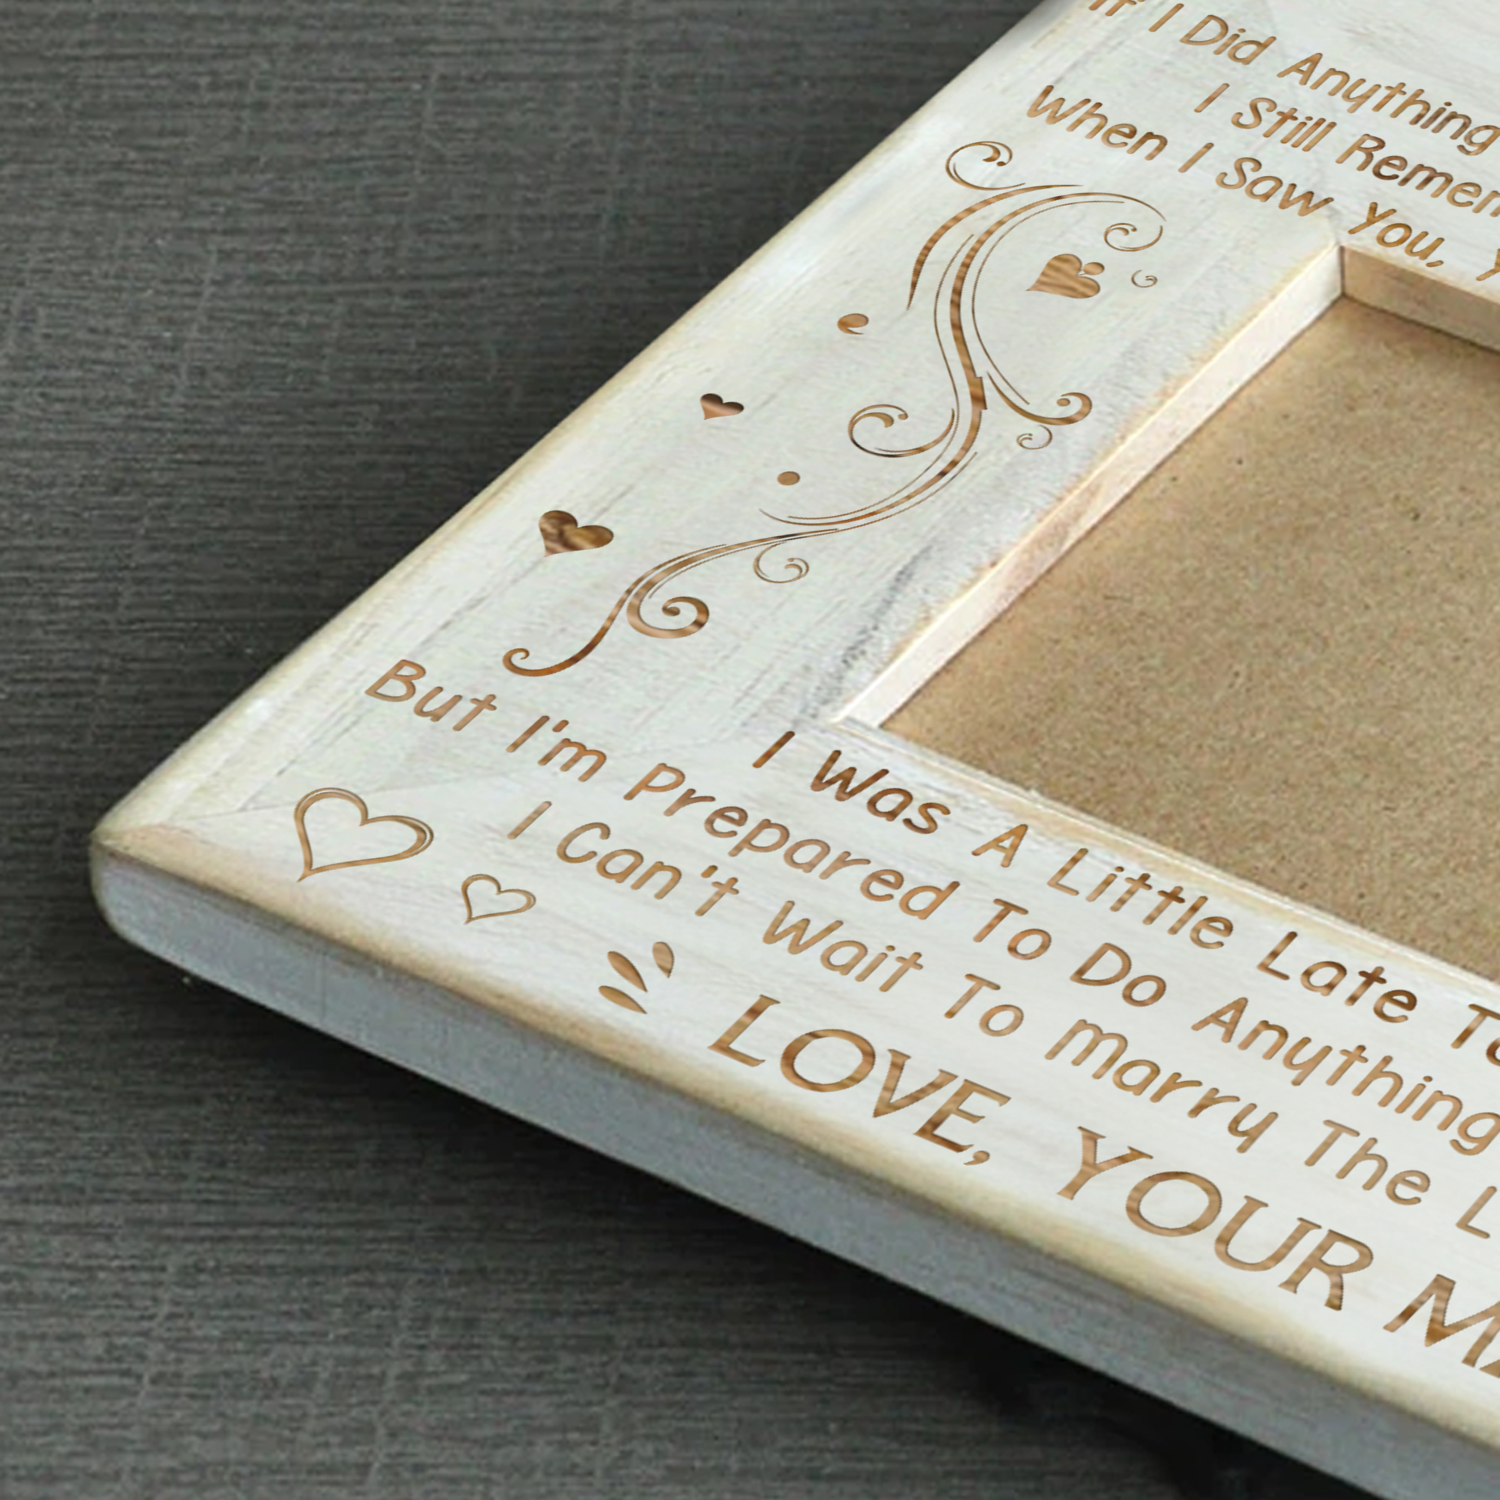 If I Did Anything
I Still
When I Saw You,
I Was A Little Late
But I'm Prepared To Do Anything
I Can't Wait To Marry The
LOVE, YOUR